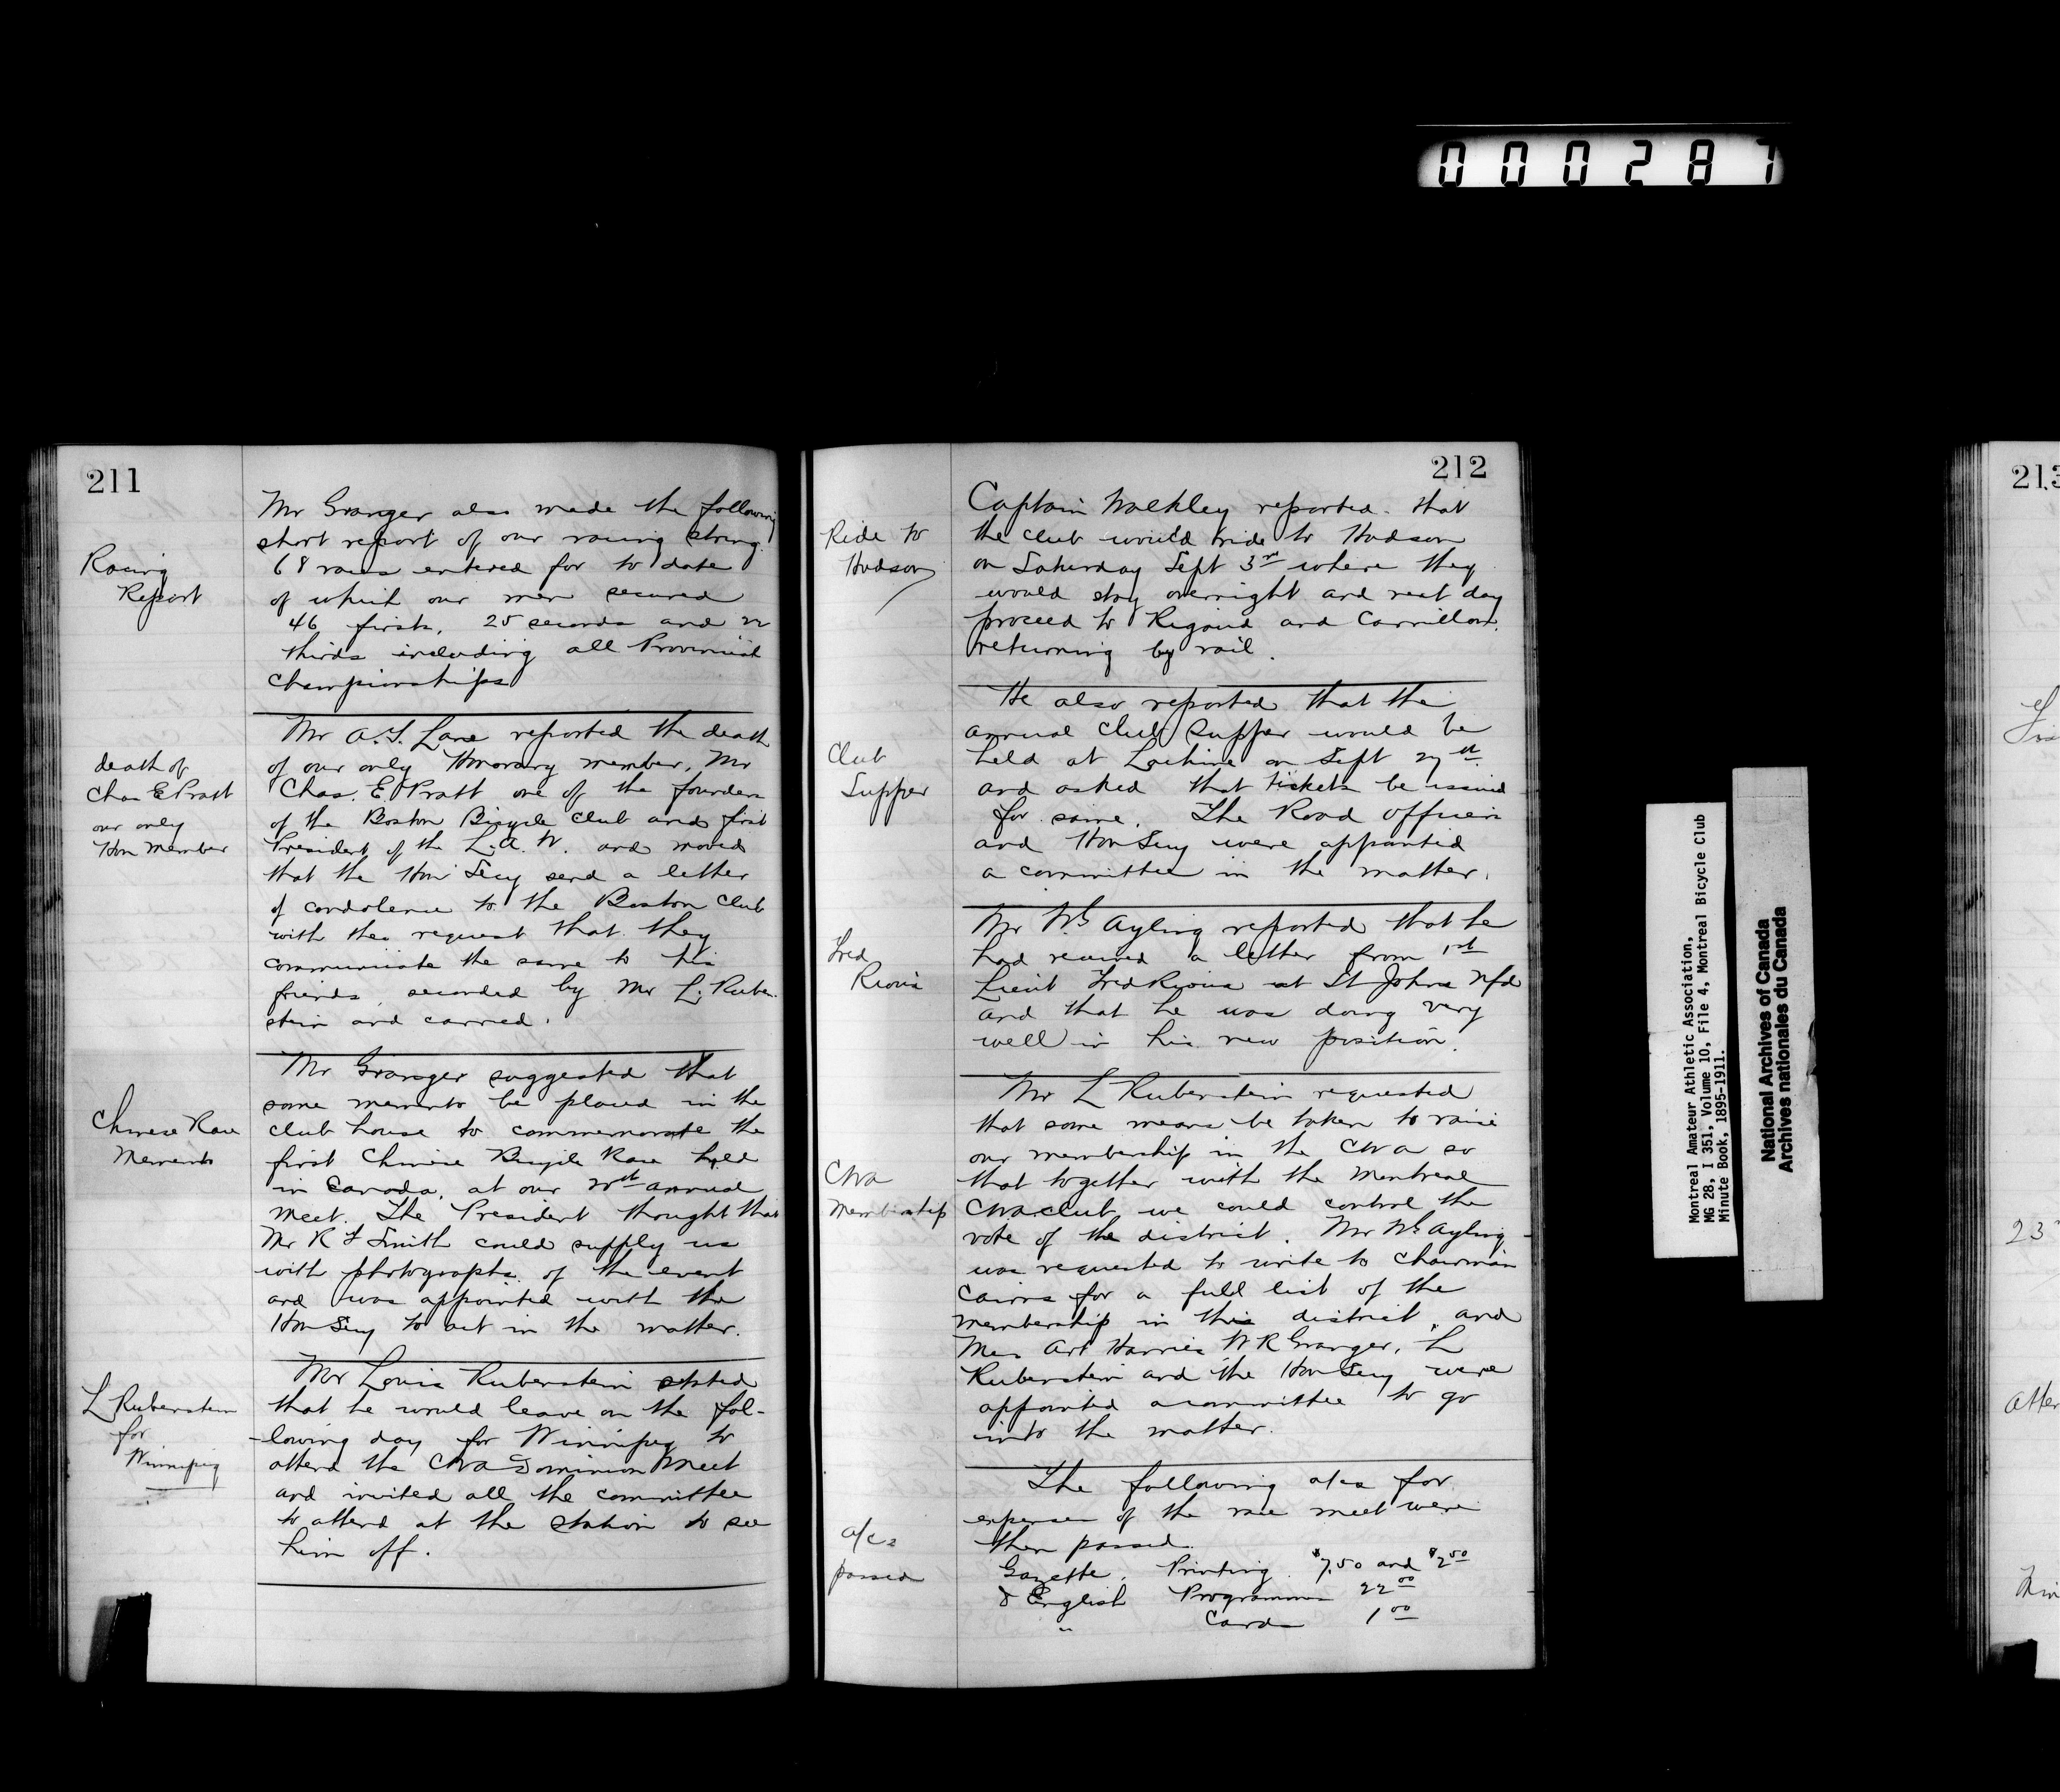 000287
211
Mr Granger also made the following
short report of our racing string.
Racing
Report
68 races entered for to date
of which our men secured
46 firsts, 25 seconds and 22
thirds including all Provincial
Championships
death of
Chas E Pratt
our only
Hon Member
Mr A.T. Lane reported the death
of our only Honorary member, Mr
Chas. E. Pratt one of the founders
of the Boston Bicycle Club and first
President of the L.A.W. and moved
that the Hon Secy send a letter
of condolence to the Boston Club
with the request that they
communicate the same to his
friends, seconded by Mr L. Ruben-
stein and carried.
Chinese Race
Memento
Mr Granger suggested that
some memento be placed in the
club house to commemorate the
first Chinese Bicycle Race held
in Canada, at our 20th annual
meet. The President thought that
Mr R F Smith could supply us
with photographs of the event
and was appointed with the
Hon Secy to act in the matter.
L Rubenstein
for
Winnipeg
Mr Louis Rubenstein stated
that he would leave on the fol-
-lowing day for Winnipeg to
attend the CWA Dominion Meet
and invited all the committee
to attend at the station to see
him off.
212
Ride to
Hudson
Captain Walkley reported that
the club would ride to Hudson
on Saturday Sept 3rd where they
would stay overnight and next day
proceed to Rigaud and Carrillon,
returning by rail.
Club
Supper
He also reported that the
annual Club Supper would be
held at Lachine on Sept 27th
and asked that tickets be issued
for same. The Road Officers
and Hon Secy were appointed
a committee in the matter.
Fred
Mr Wh Ayling reported that he
had received a letter from 1st
Lieut Fred at St Johns Nfd
and that he was doing very
well in his new position.
CWA
Membership
Mr L Rubenstein requested
that some means be taken to raise
our membership in the CWA so
that together with the Montreal
CWA club we could control the
vote of the district. Mr Wh Ayling
was requested to write to Chairman
Cairns for a full list of the
membership in this district, and
Mess Art Harries W R Granger, L
Rubenstein and the Hon Secy were
appointed a committee to go
into the matter.
a/cs
passed
The following a/cs for
expenses of the race meet were
then passed.
Gazette, Printing $7.50 and $2.50
J English Programmes 22.00
" Cards 1.00
Montreal Amateur Athletic Association,
MG 28, I 351, Volume 10, File 4, Montreal Bicycle Club
Minute Book, 1895-1911.
National Archives of Canada
Archives nationales du Canada
213
23